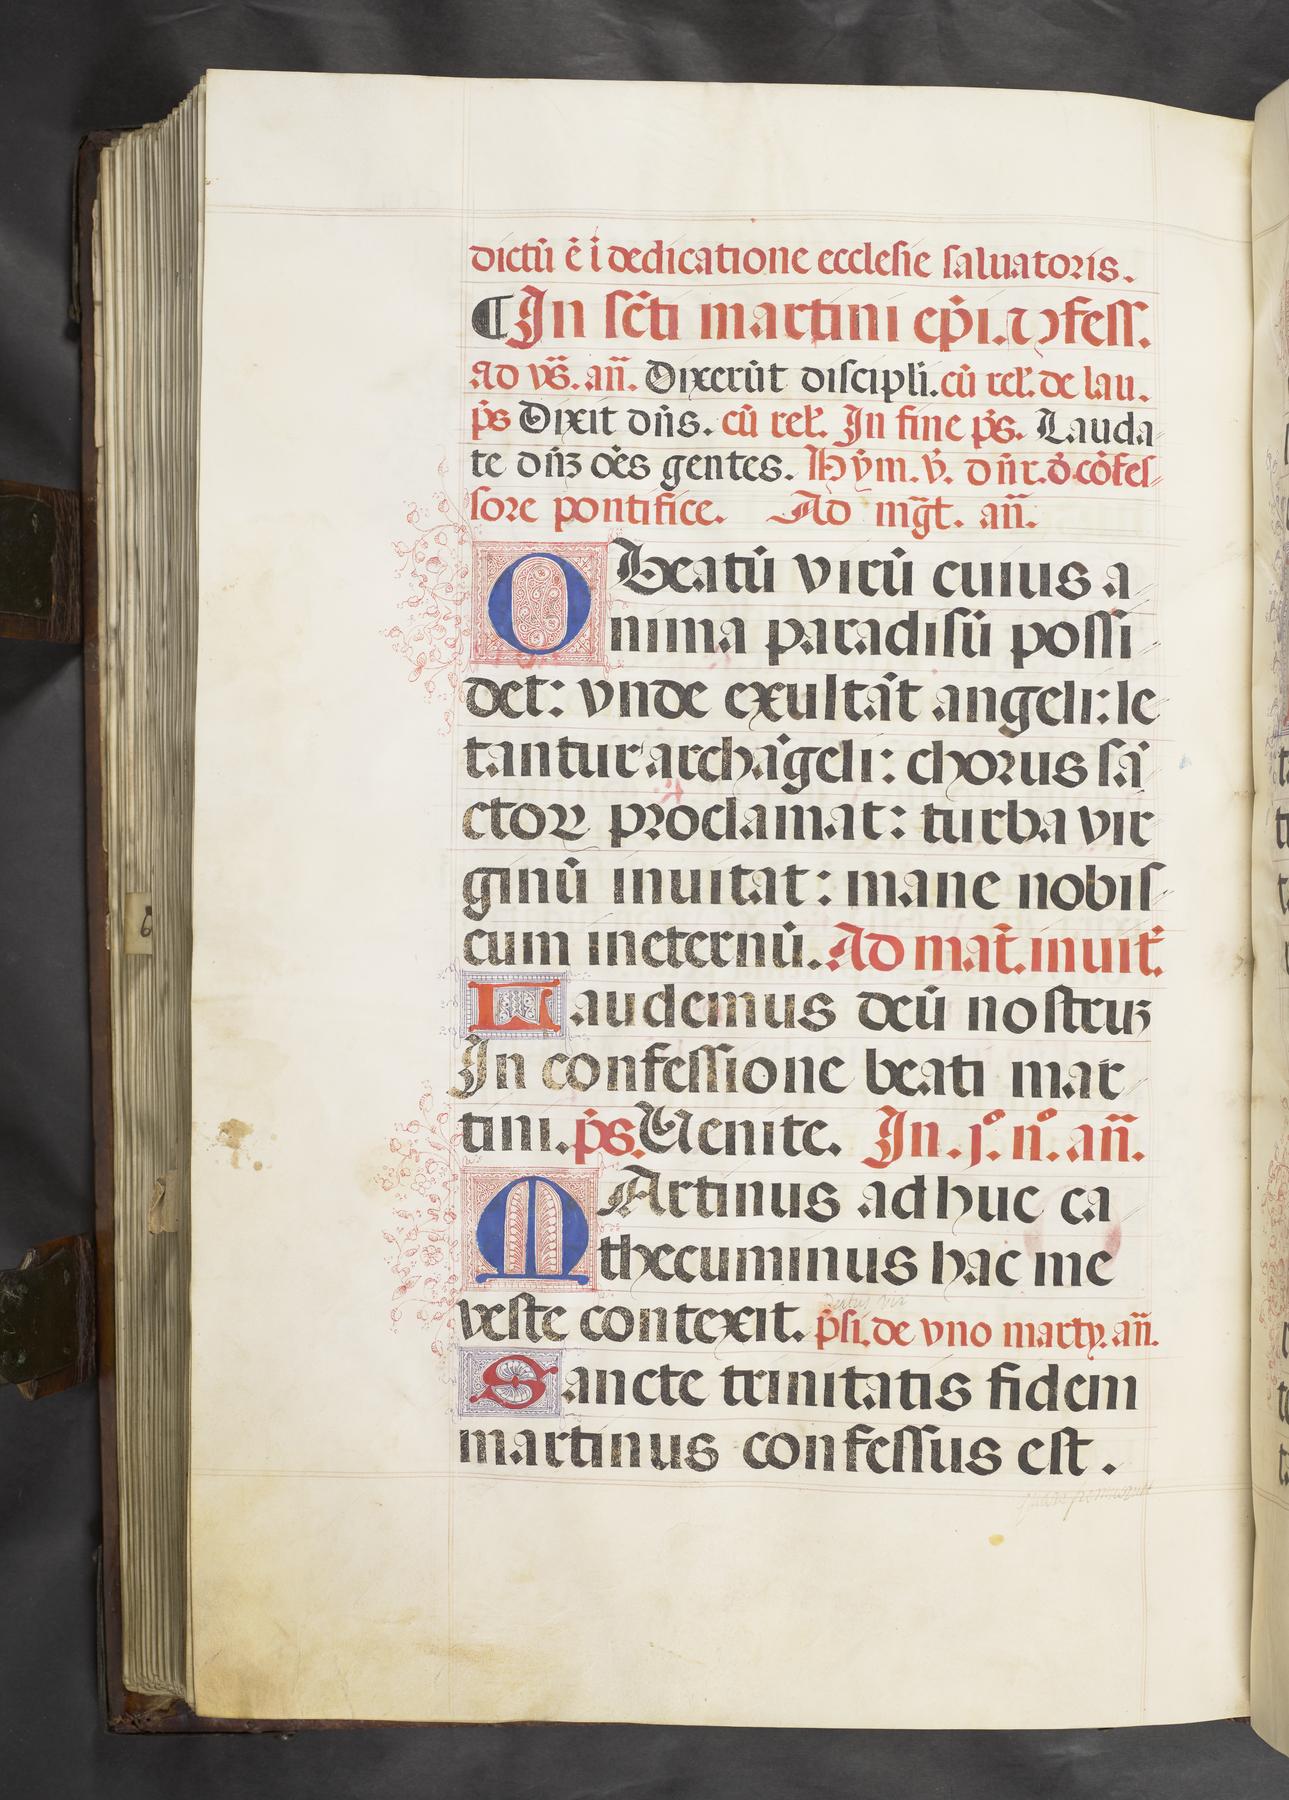 dictū ē ī dedicatione ecclesie saluatoris.
¶ In sc̄ti martini ep̄i. ⁊ ꝯfess.
Ad vs̄. an̄. Dixerūt discipli. cū rel. de lau.
p̄s Dixit dn̄s. cū rel. In fine p̄s. Lauda
te dn̄ꝫ oēs gentes. Hym. v̄. dn̄r. ō. cōfes
sore pontifice. Ad mḡt. an̄.
O Beatū virū cuius a
nima paradisū possi
det: vnde exultāt angeli: le
tantur archāgeli: chorus sā
ctoꝝ proclamat: turba vir
ginū inuitat: mane nobis
cum in eternū. Ad mat̄. inuit̄.
Laudemus deū nostruꝫ
In confessione beati mar
tini. p̄s. Uenite. In. jº. nº. an̄.
MArtinus adhuc ca
thecuminus hac me
veste contexit. p̄si. de vno marty. an̄.
Sancte trinitatis fidem
martinus confessus est.
6